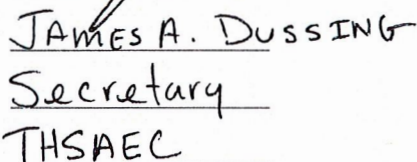 JAMES A. DUSSING
Secretary
THSAEC